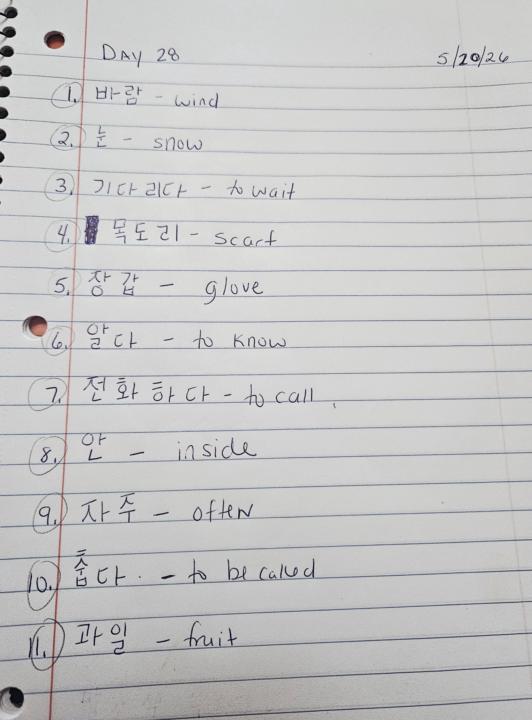 DAY 28 5/20/26
1. 바람 - wind
2. 눈 - snow
3. 기다리다 - to wait
4. 목도리 - scarf
5. 장갑 - glove
6. 알다 - to know
7. 전화하다 - to call
8. 안 - inside
9. 자주 - often
10. 춥다. - to be called
11. 과일 - fruit